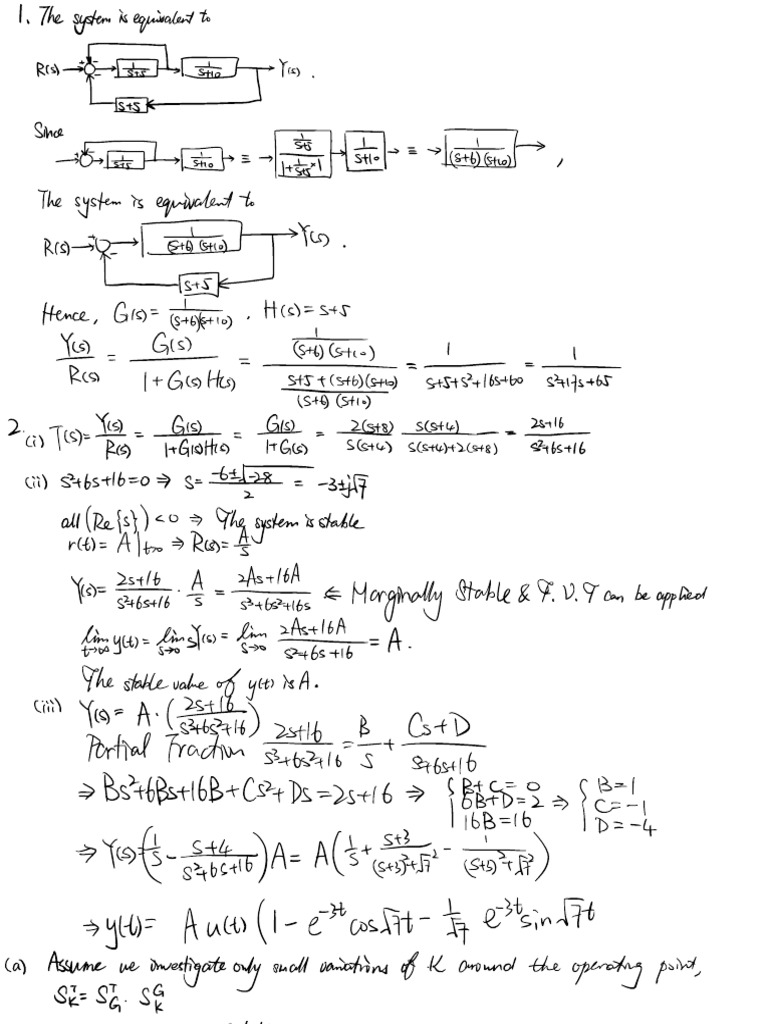 1. The system is equivalent to
R(s) + - - 1/(s+5) 1/(s+10) Y(s).
s+5
Since
1/(s+5) 1/(s+10) ≡ (1/(s+5))/(1+1/(s+5)×1) 1/(s+10) ≡ 1/((s+6)(s+10)) ,
The system is equivalent to
R(s) + - 1/((s+6)(s+10)) Y(s).
s+5
Hence, G(s)= 1/((s+6)(s+10)) , H(s)=s+5
Y(s)/R(s) = G(s)/(1+G(s)H(s)) = (1/((s+6)(s+10)))/((s+5+(s+6)(s+10))/((s+6)(s+10))) = 1/(s+5+s²+16s+60) = 1/(s²+17s+65)
2. (i) T(s)= Y(s)/R(s) = G(s)/(1+G(s)H(s)) = G(s)/(1+G(s)) = 2(s+8)/(s(s+4)) s(s+4)/(s(s+4)+2(s+8)) = (2s+16)/(s²+6s+16)
(ii) s²+6s+16=0 ⇒ s= (-6±√-28)/2 = -3±j√7
all (Re{s}) <0 ⇒ The system is stable
r(t)= A|t>0 ⇒ R(s)= A/s
Y(s)= (2s+16)/(s²+6s+16) · A/s = (2As+16A)/(s³+6s²+16s) ⇐ Marginally Stable & F.V.T can be applied
lim t→∞ y(t)= lim s→0 sY(s)= lim s→0 (2As+16A)/(s²+6s+16) = A.
The stable value of y(t) is A.
(iii) Y(s)= A·((2s+16)/(s³+6s²+16))
Partial Fraction (2s+16)/(s³+6s²+16) = B/s + (Cs+D)/(s²+6s+16)
⇒ Bs²+6Bs+16B+Cs²+Ds=2s+16 ⇒ { B+C=0 6B+D=2 16B=16 ⇒ { B=1 C=-1 D=-4
⇒ Y(s)=(1/s - (s+4)/(s²+6s+16))A= A(1/s + (s+3)/((s+3)²+√7²) - 1/((s+3)²+√7²))
⇒ y(t)= A u(t) (1-e^-3t cos√7t - 1/√7 e^-3t sin√7t
(a) Assume we investigate only small variations of K around the operating point,
S_K^T= S_G^T · S_K^G